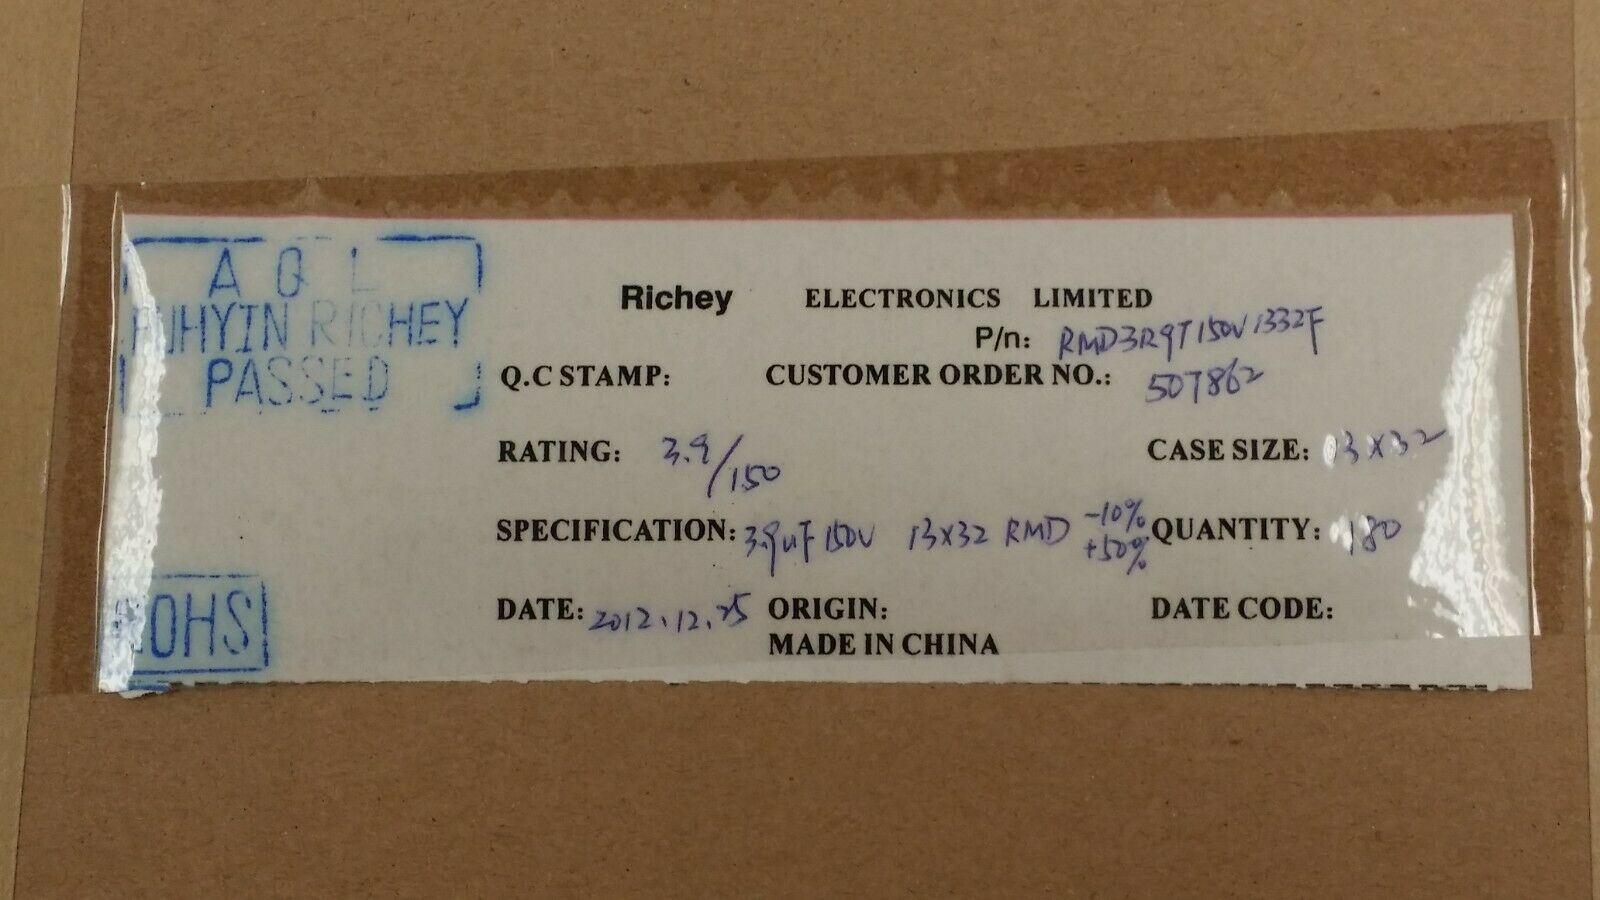 A Q L
RICHEY
PASSED
Richey ELECTRONICS LIMITED
P/n: RMD3R9T150V1332F
Q.C STAMP: CUSTOMER ORDER NO.: 507862
RATING: 3.9/150 CASE SIZE: 13x32
SPECIFICATION: 3.9uF 150V 13x32 RMD -10% +50% QUANTITY: 180
DATE: 2012.12.25 ORIGIN: DATE CODE:
MADE IN CHINA
ROHS